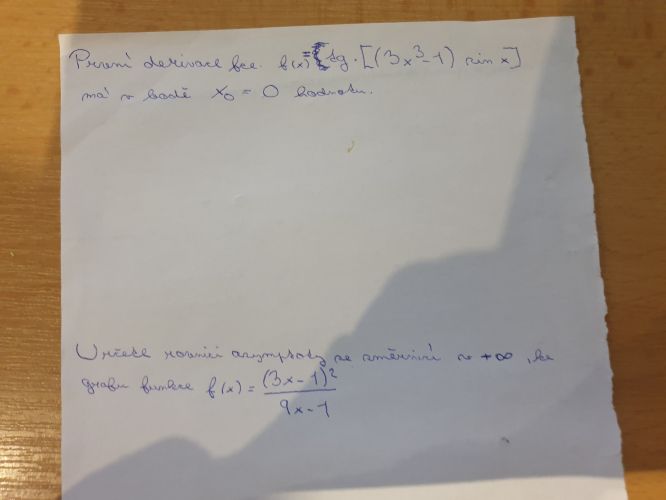 První derivace fce. f(x) = tg · [(3x³-1) sin x]
má v bodě x₀ = 0 hodnotu.
Určete rovnici asymptoty se směrnicí v +∞, ke
grafu funkce f(x) = (3x-1)² / 9x-1